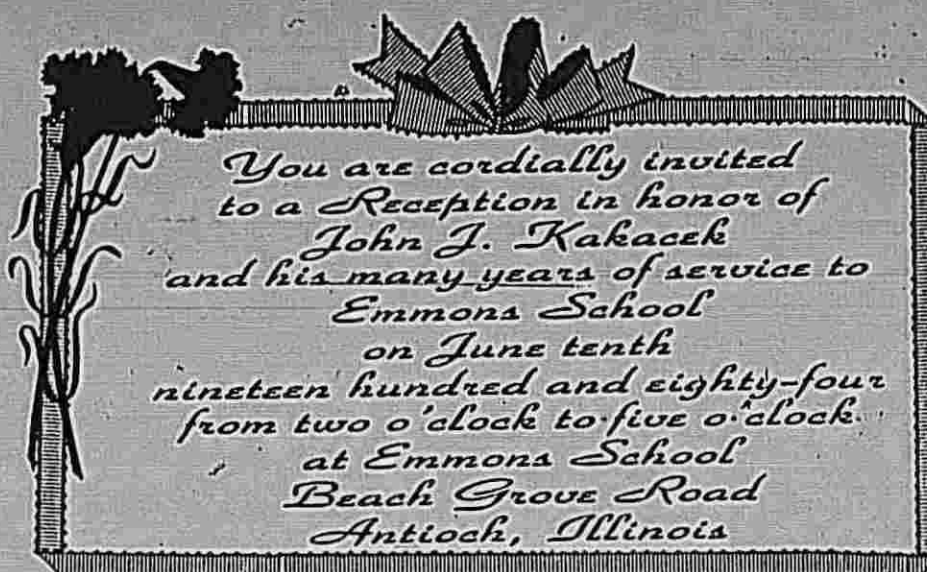 You are cordially invited
to a Reception in honor of
John J. Kakacek
and his many years of service to
Emmons School
on June tenth
nineteen hundred and eighty-four
from two o'clock to five o'clock
at Emmons School
Beach Grove Road
Antioch, Illinois